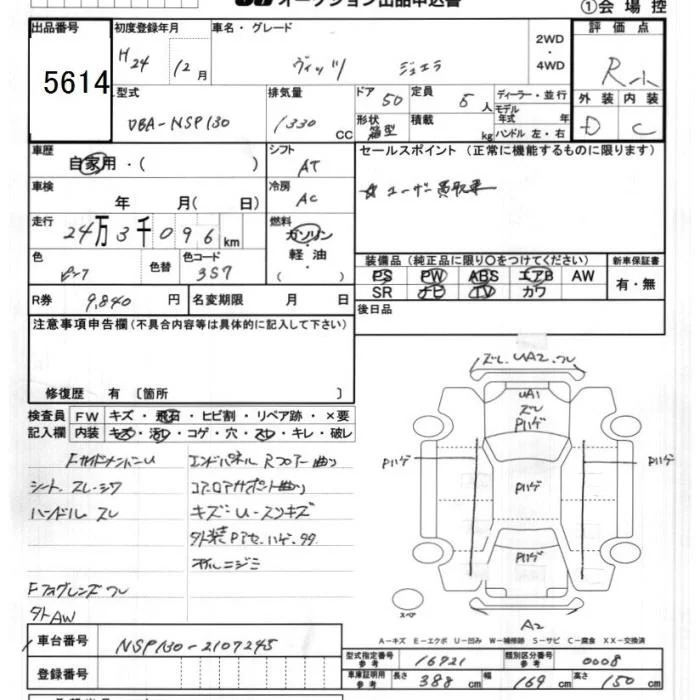 オークション出品申込書
①会場控
出品番号 初度登録年月 車名・グレード 2WD 4WD 評価点
5614 H24 12月 ヴィッツ ジュエラ R小
型式 排気量 ドア 5D 定員 5人 ディーラー・並行 外装 内装
DBA-NSP130 1330 CC 形状 箱型 積載 kg モデル年式 年 ハンドル 左・右 D C
車歴 シフト セールスポイント (正常に機能するものに限ります)
自家用・( ) AT
車検 冷房 ☆ユーザー買取車
年 月( 日) AC
走行 燃料
24万3千096km ガソリン・軽油・( )
色 色替 色コード 装備品 (純正品に限り○をつけてください) 新車保証書
ピンク 3S7 PS PW ABS エアB AW 有・無
SR ナビ TV カワ
R券 9,840円 名変期限 月 日 後日品
注意事項申告欄(不具合内容等は具体的に記入して下さい)
修復歴 有 〔箇所 〕
検査員 FW キズ・飛石・ヒビ割・リペア跡・×要
記入欄 内装 キズ・汚レ・コゲ・穴・スレ・キレ・破レ
FサイドメンバーU エンドパネル Rフロアー曲り
シート スレ・シワ コアロアサポート曲り
ハンドル スレ キズ・U・スリキズ
外装Pアセ、ハゲ、タダ
オイルニジミ
Fフォグレンズワレ
社外AW
ズレ、UA2、ワレ
UA1
ズレ
Pハゲ
Pハゲ Pハゲ Pハゲ
Pハゲ
スペア
A2
A-キズ E-エクボ U-凹み W-補修跡 S-サビ C-腐食 XX-交換済
車台番号 NSP130-2107245
登録番号
型式指定番号 参考 16921 類別区分番号 参考 0008
車庫証明用 参考 長さ 388cm 幅 169cm 高さ 150cm